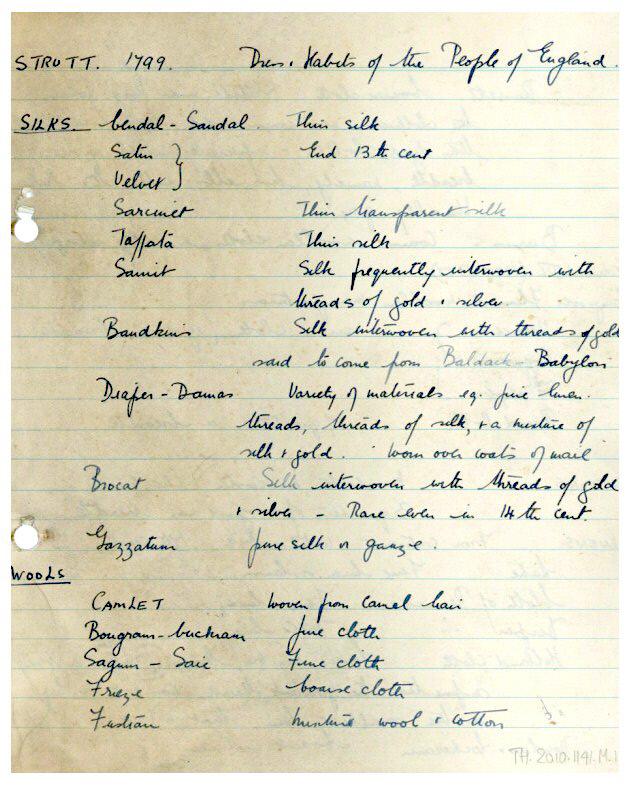 STRUTT. 1799. Dress & Habits of the People of England.
SILKS. Cendal - Sandal. Thin silk
Satin } End 13th cent
Velvet }
Sarcinet Thin transparent silk
Taffata Thin silk
Samit Silk frequently interwoven with
threads of gold & silver
Baudkins Silk interwoven with threads of gold
said to come from Baldack - Babylon
Diaper - Damas Variety of materials eg. fine linen.
threads, threads of silk, & a mixture of
silk & gold. Worn over coats of mail
Brocat Silk interwoven with threads of gold
& silver - Rare even in 14th cent.
Gazzatum fine silk or gauze.
WOOLS
CAMLET woven from camel hair
Bougram - buckram fine cloth
Sagum - Saie Fine cloth
Frieze Coarse cloth
Fustian mixture wool & cotton
TH.2010.1141.M.1